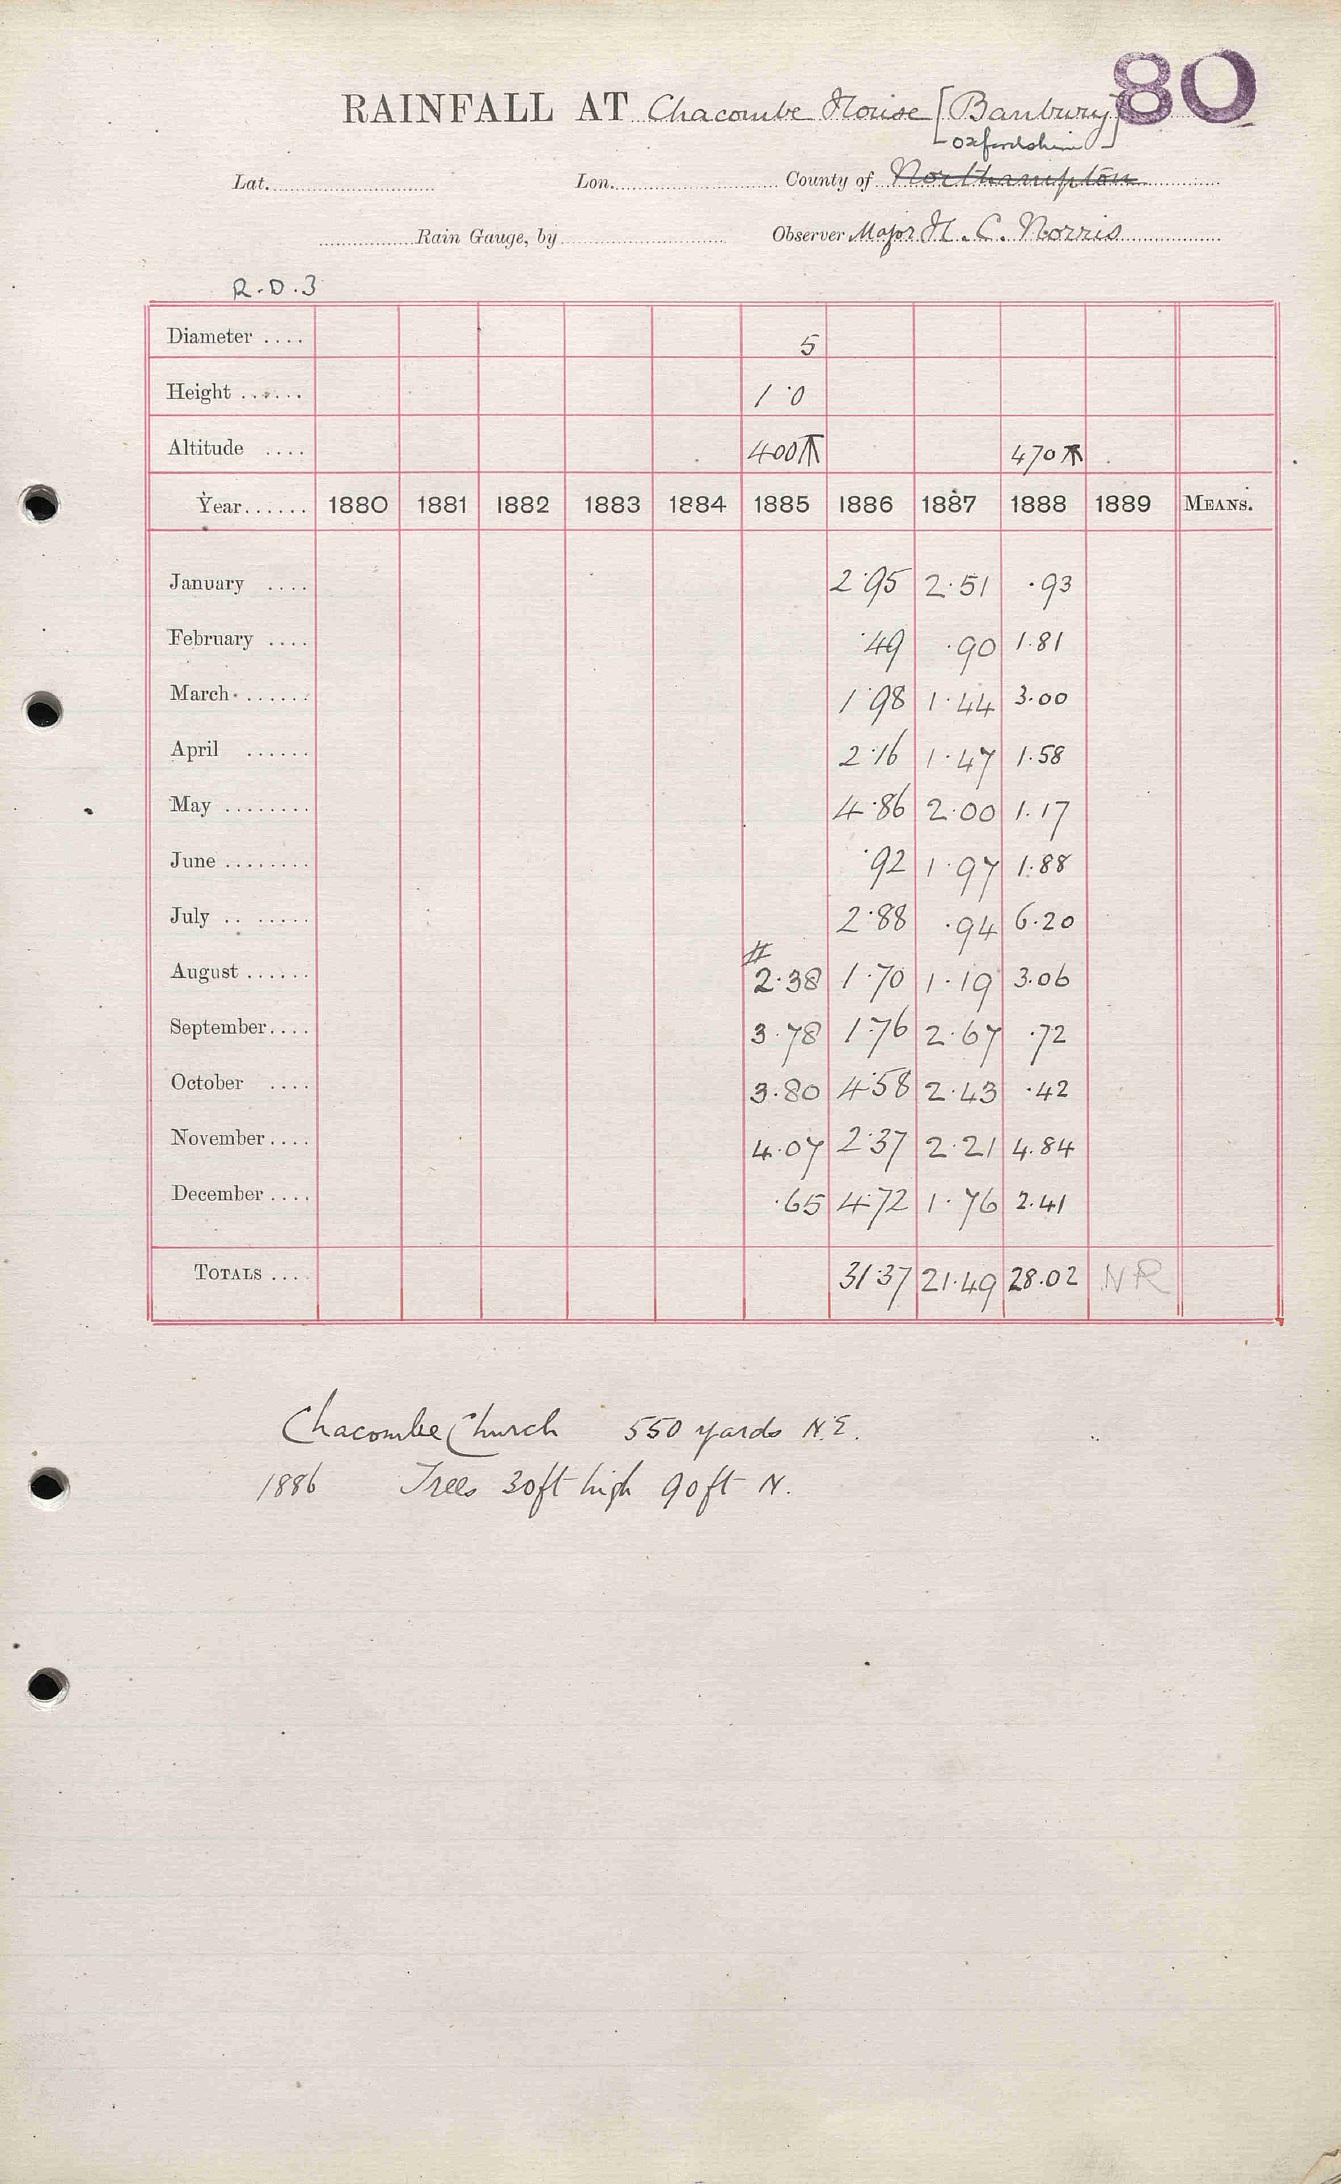 80
RAINFALL AT Chacombe House [Banbury]
Oxfordshire
Lat. Lon. County of Northampton
Rain Gauge, by Observer Major H. C. Norris
R.D.3
Diameter .... 5
Height ...... 1·0
Altitude .... 400 470
Year...... 1880 1881 1882 1883 1884 1885 1886 1887 1888 1889 MEANS.
January .... 2·95 2·51 ·93
February .... ·49 ·90 1.81
March ...... 1·98 1·44 3.00
April ...... 2·16 1·47 1.58
May ........ 4·86 2·00 1.17
June ........ ·92 1·97 1.88
July .. ...... 2·88 ·94 6.20
#
August ...... 2·38 1·70 1·19 3.06
September.... 3·78 1·76 2·67 ·72
October .... 3·80 4·58 2·43 ·42
November.... 4·07 2·37 2·21 4.84
December .... ·65 4·72 1·76 2.41
TOTALS .... 31·37 21·49 28.02 NR
Chacombe Church 550 yards N.E.
1886 Trees 30ft high 90ft N.